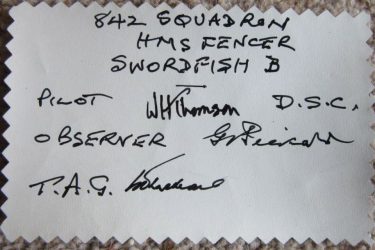 842 SQUADRON
HMS FENCER
SWORDFISH B
PILOT WHThomson D.S.C.
OBSERVER
T.A.G.